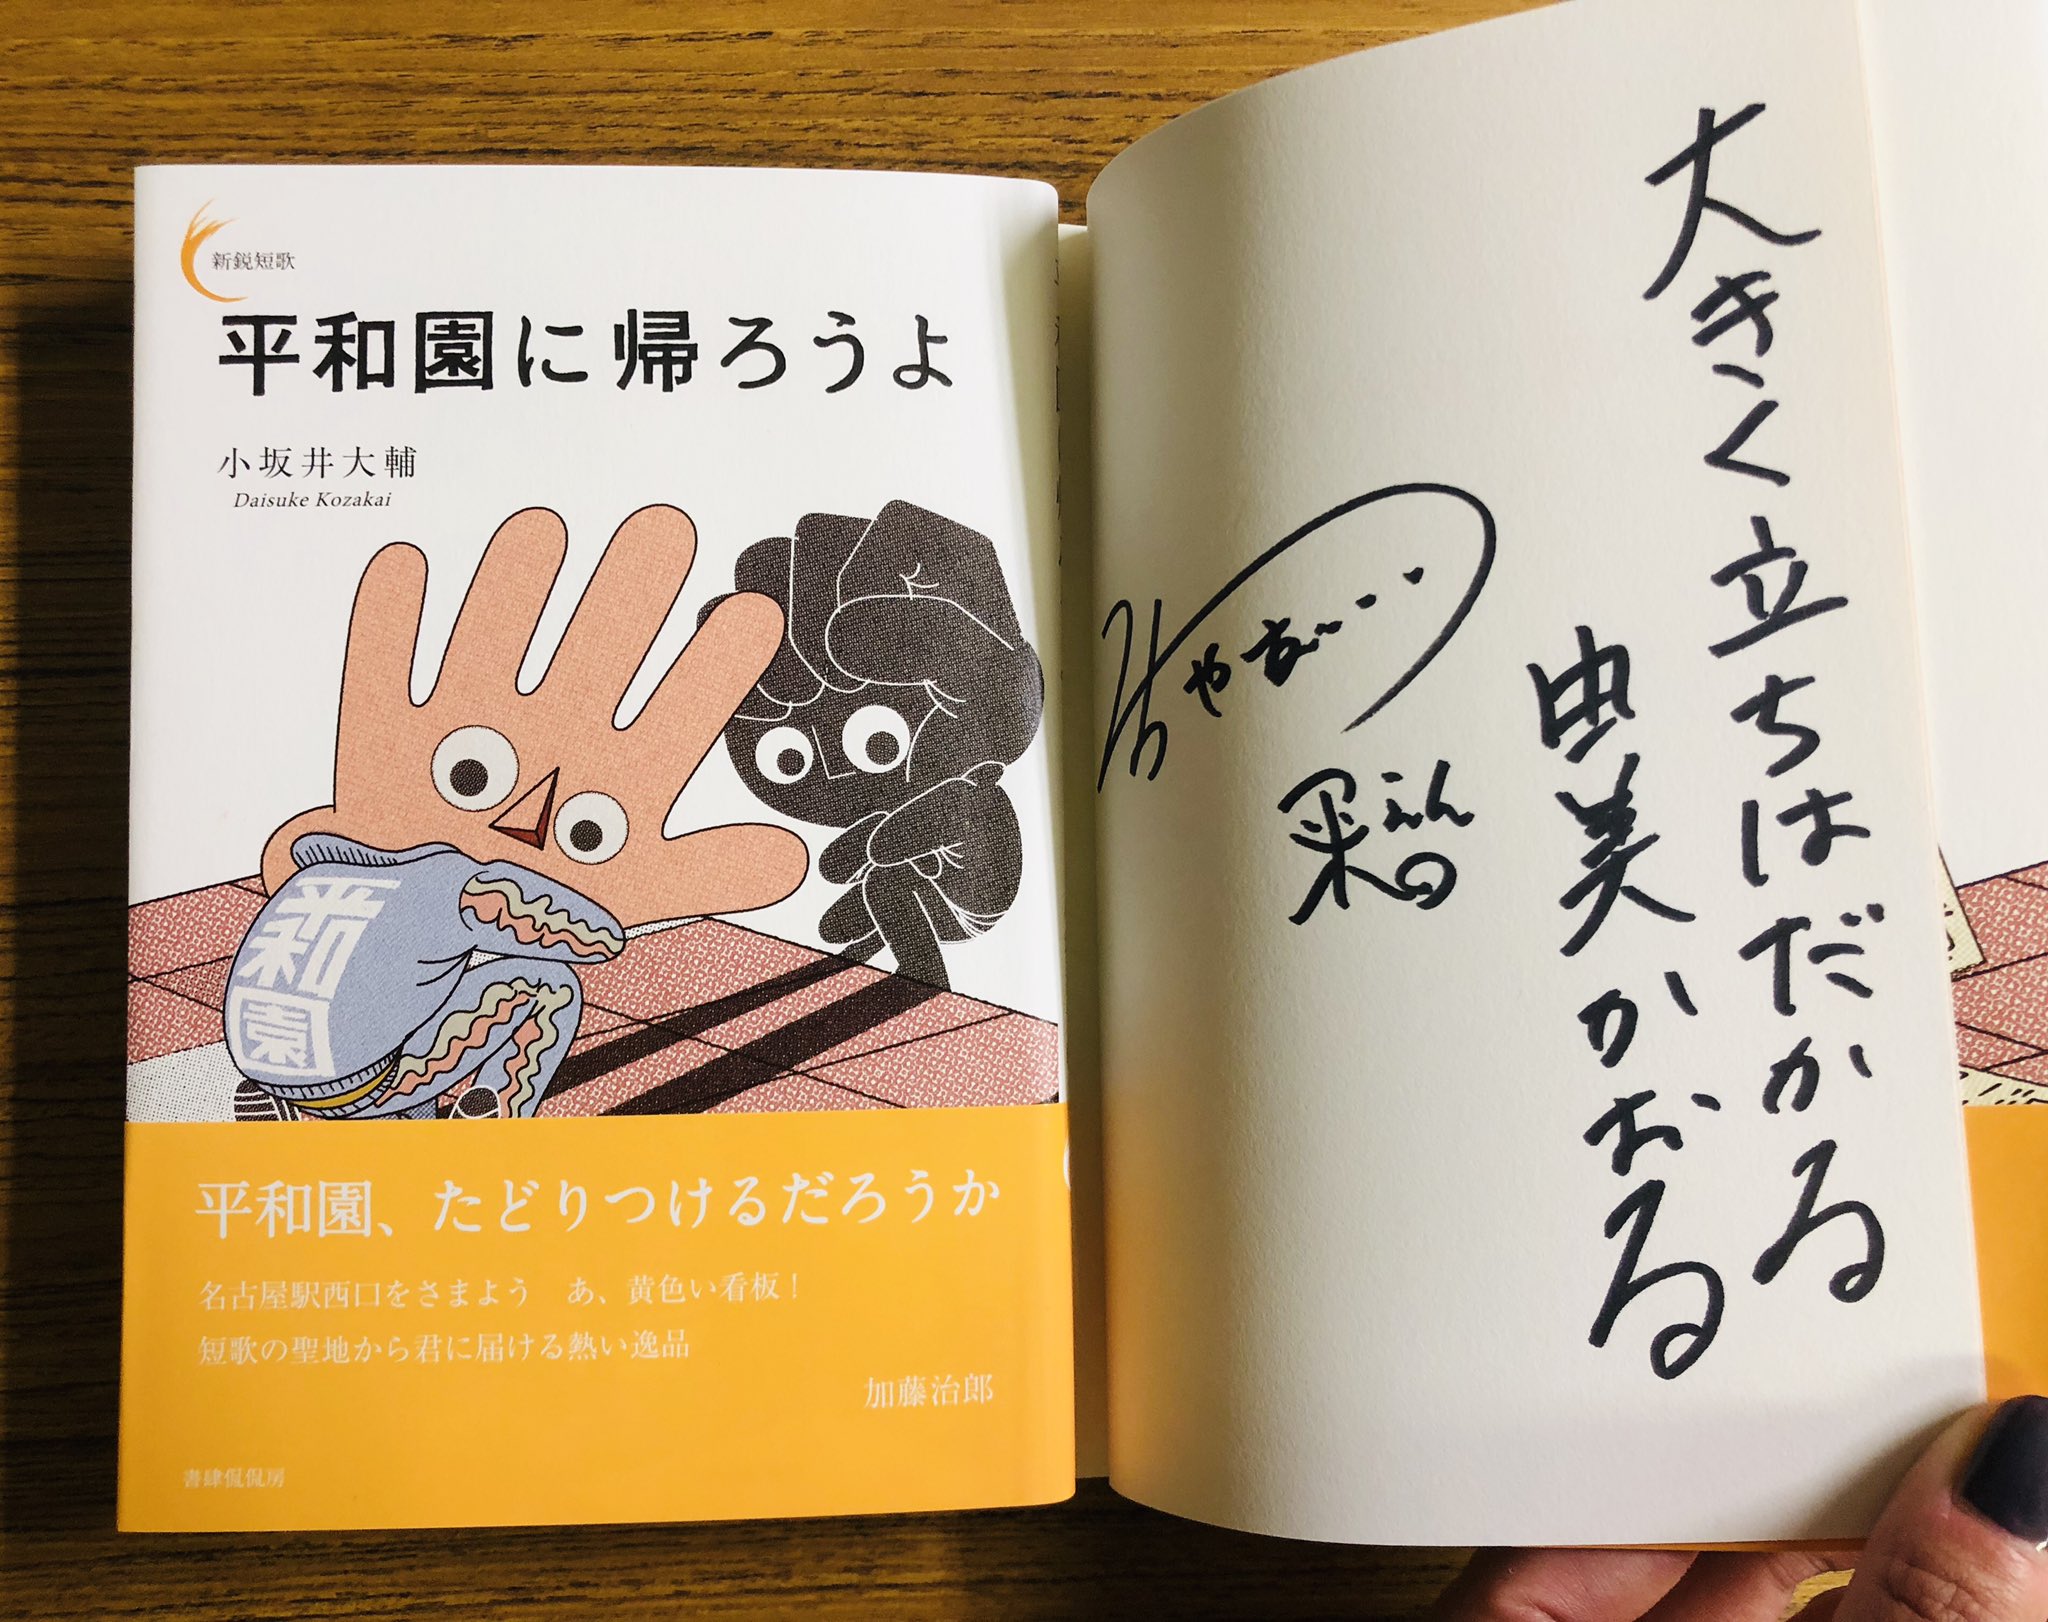 新鋭短歌
平和園に帰ろうよ
小坂井大輔
Daisuke Kozakai
平和園
平和園、たどりつけるだろうか
名古屋駅西口をさまよう　あ、黄色い看板！
短歌の聖地から君に届ける熱い逸品
加藤治郎
書肆侃侃房
大きく立ちはだかる
由美かおる